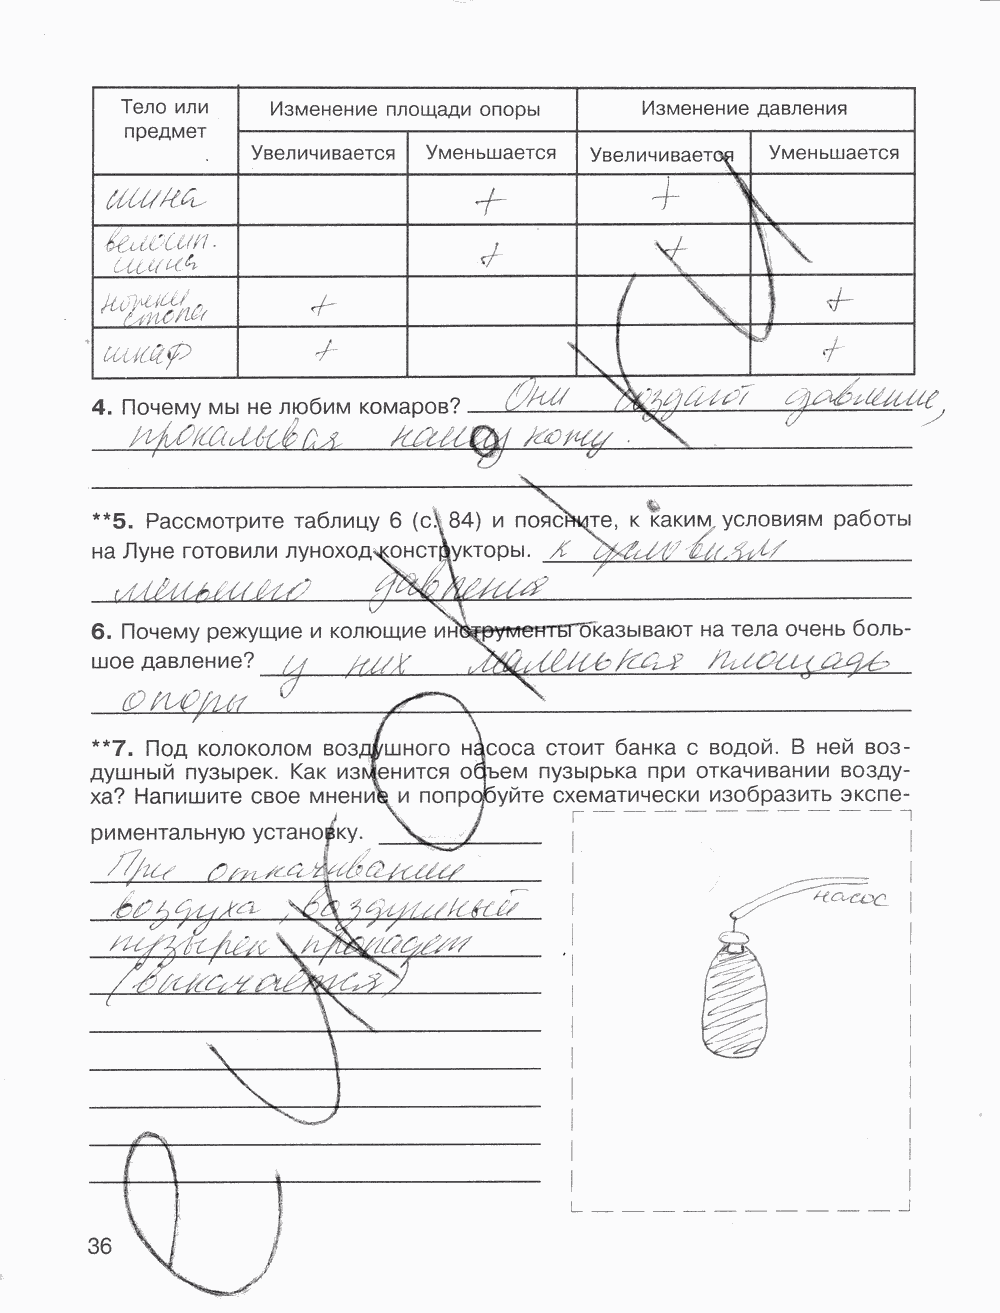 Тело или предмет
Изменение площади опоры
Изменение давления
Увеличивается
Уменьшается
Увеличивается
Уменьшается
шина + +
велосип. шина + +
ножки стола + +
шкаф + +
4. Почему мы не любим комаров? Они создают давление,
прокалывая нашу кожу.
**5. Рассмотрите таблицу 6 (с. 84) и поясните, к каким условиям работы
на Луне готовили луноход конструкторы. к условиям
меньшего давления
6. Почему режущие и колющие инструменты оказывают на тела очень боль-
шое давление? у них маленькая площадь
опоры
**7. Под колоколом воздушного насоса стоит банка с водой. В ней воз-
душный пузырек. Как изменится объем пузырька при откачивании возду-
ха? Напишите свое мнение и попробуйте схематически изобразить экспе-
риментальную установку.
При откачивании
воздуха, воздушный
пузырек пропадет
(выкачается)
насос
36